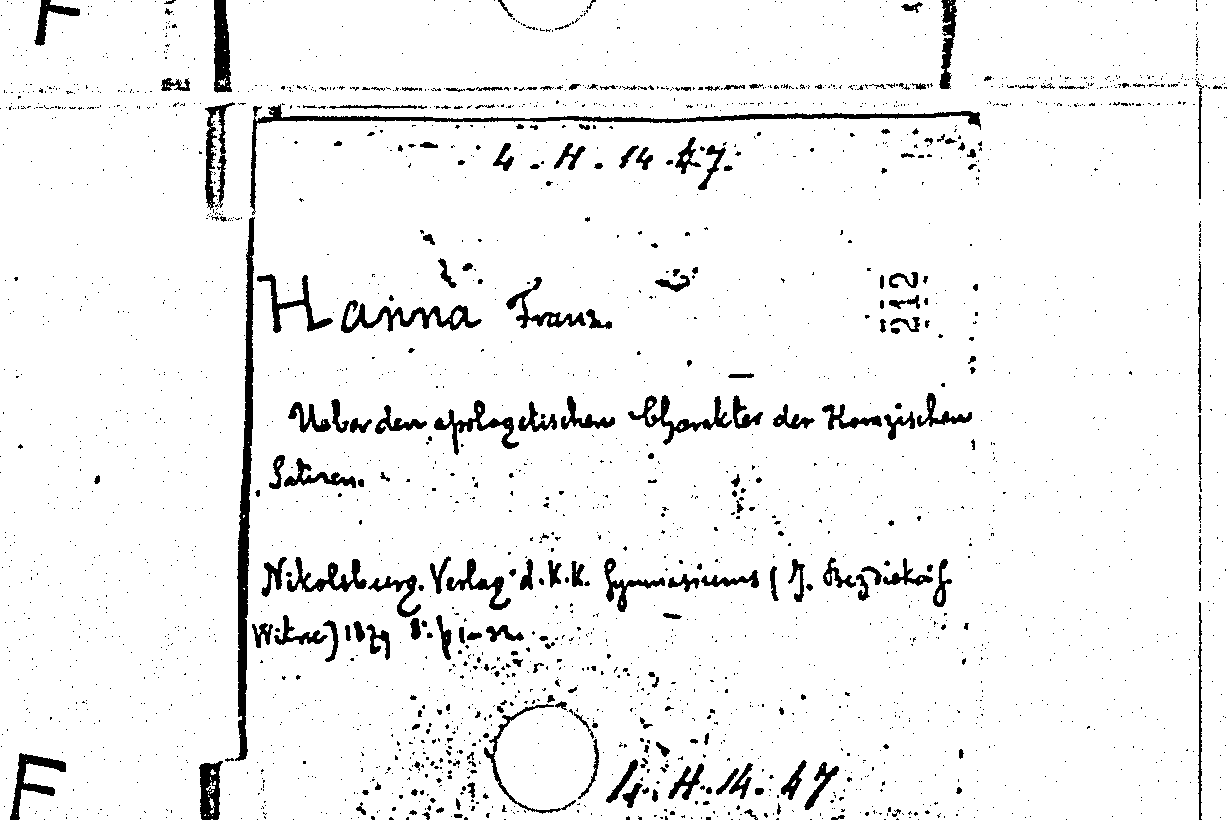 F
4. H. 14. 47.
Hanna Franz.
212
Ueber den apologetischen Charakter der Horazischen
Satiren.
Nikolsburg. Verlag d. K. K. Gymnasiums (J. Bezdieka'sf.
Witwe) 1879 8°. p 1-32.
4. H. 14. 47
F